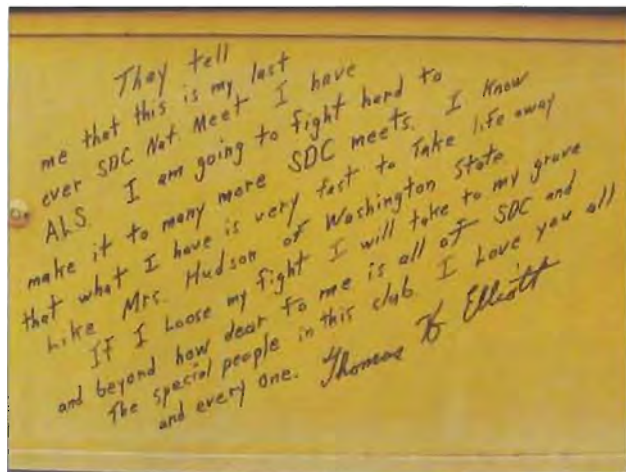 They tell
me that this is my last
ever SDC Nat. Meet I have
ALS. I am going to fight hard to
make it to many more SDC meets. I know
that what I have is very fast to Take life away
Like Mrs. Hudson of Washington State
If I Loose my fight I will take to my grave
and beyond how dear to me is all of SDC and
The special people in this club. I Love you all
and every one. Thomas K Elliott